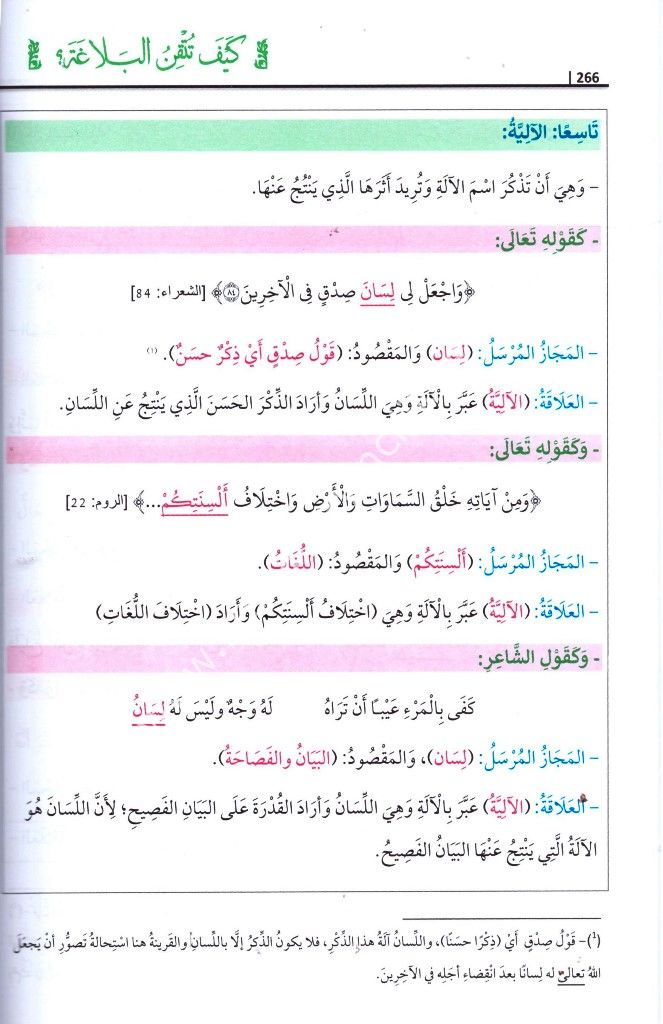 كَيْفَ تُتْقِنُ البَلاغَةَ؟
266
تَاسِعًا: الآلِيَّةُ:
- وَهِيَ أَنْ تَذْكُرَ اسْمَ الآلَةِ وَتُرِيدَ أَثَرَهَا الَّذِي يَنْتُجُ عَنْهَا.
- كَقَوْلِهِ تَعَالَى:
﴿وَاجْعَلْ لِي لِسَانَ صِدْقٍ فِي الْآخِرِينَ ٨٤﴾ [الشعراء: 84]
- المَجَازُ المُرْسَلُ: (لِسَان) وَالمَقْصُودُ: (قَوْلُ صِدْقٍ أَيْ ذِكْرٌ حَسَنٌ). (١)
- العَلَاقَةُ: (الآلِيَّةُ) عَبَّرَ بِالْآلَةِ وَهِيَ اللِّسَانُ وَأَرَادَ الذِّكْرَ الحَسَنَ الَّذِي يَنْتِجُ عَنِ اللِّسَانِ.
- وَكَقَوْلِهِ تَعَالَى:
﴿وَمِنْ آيَاتِهِ خَلْقُ السَّمَاوَاتِ وَالْأَرْضِ وَاخْتِلَافُ أَلْسِنَتِكُمْ...﴾ [الروم: 22]
- المَجَازُ المُرْسَلُ: (أَلْسِنَتِكُمْ) وَالمَقْصُودُ: (اللُّغَاتُ).
- العَلَاقَةُ: (الآلِيَّةُ) عَبَّرَ بِالْآلَةِ وَهِيَ (اخْتِلَافُ أَلْسِنَتِكُمْ) وَأَرَادَ (اخْتِلَافَ اللُّغَاتِ)
- وَكَقَوْلِ الشَّاعِرِ:
كَفَى بِالْمَرْءِ عَيْبًا أَنْ تَرَاهُ لَهُ وَجْهٌ وَلَيْسَ لَهُ لِسَانُ
- المَجَازُ المُرْسَلُ: (لِسَان)، وَالمَقْصُودُ: (البَيَانُ والفَصَاحَةُ).
- العَلَاقَةُ: (الآلِيَّةُ) عَبَّرَ بِالْآلَةِ وَهِيَ اللِّسَانُ وَأَرَادَ القُدْرَةَ عَلَى البَيَانِ الفَصِيحِ؛ لِأَنَّ اللِّسَانَ هُوَ
الآلَةُ الَّتِي يَنْتِجُ عَنْهَا البَيَانُ الفَصِيحُ.
(١)- قَوْلُ صِدْقٍ أَيْ (ذِكْرًا حسَنًا)، واللِّسانُ آلَةُ هذا الذِّكْرِ، فلا يكونُ الذِّكرُ إلَّا باللِّسانِ والقَرينةُ هنا استِحالةُ تَصوُّرِ أنْ يَجعَلَ
اللهُ تعالى له لِسانًا بعدَ انْقِضاءِ أجَلِه في الآخِرِينَ.